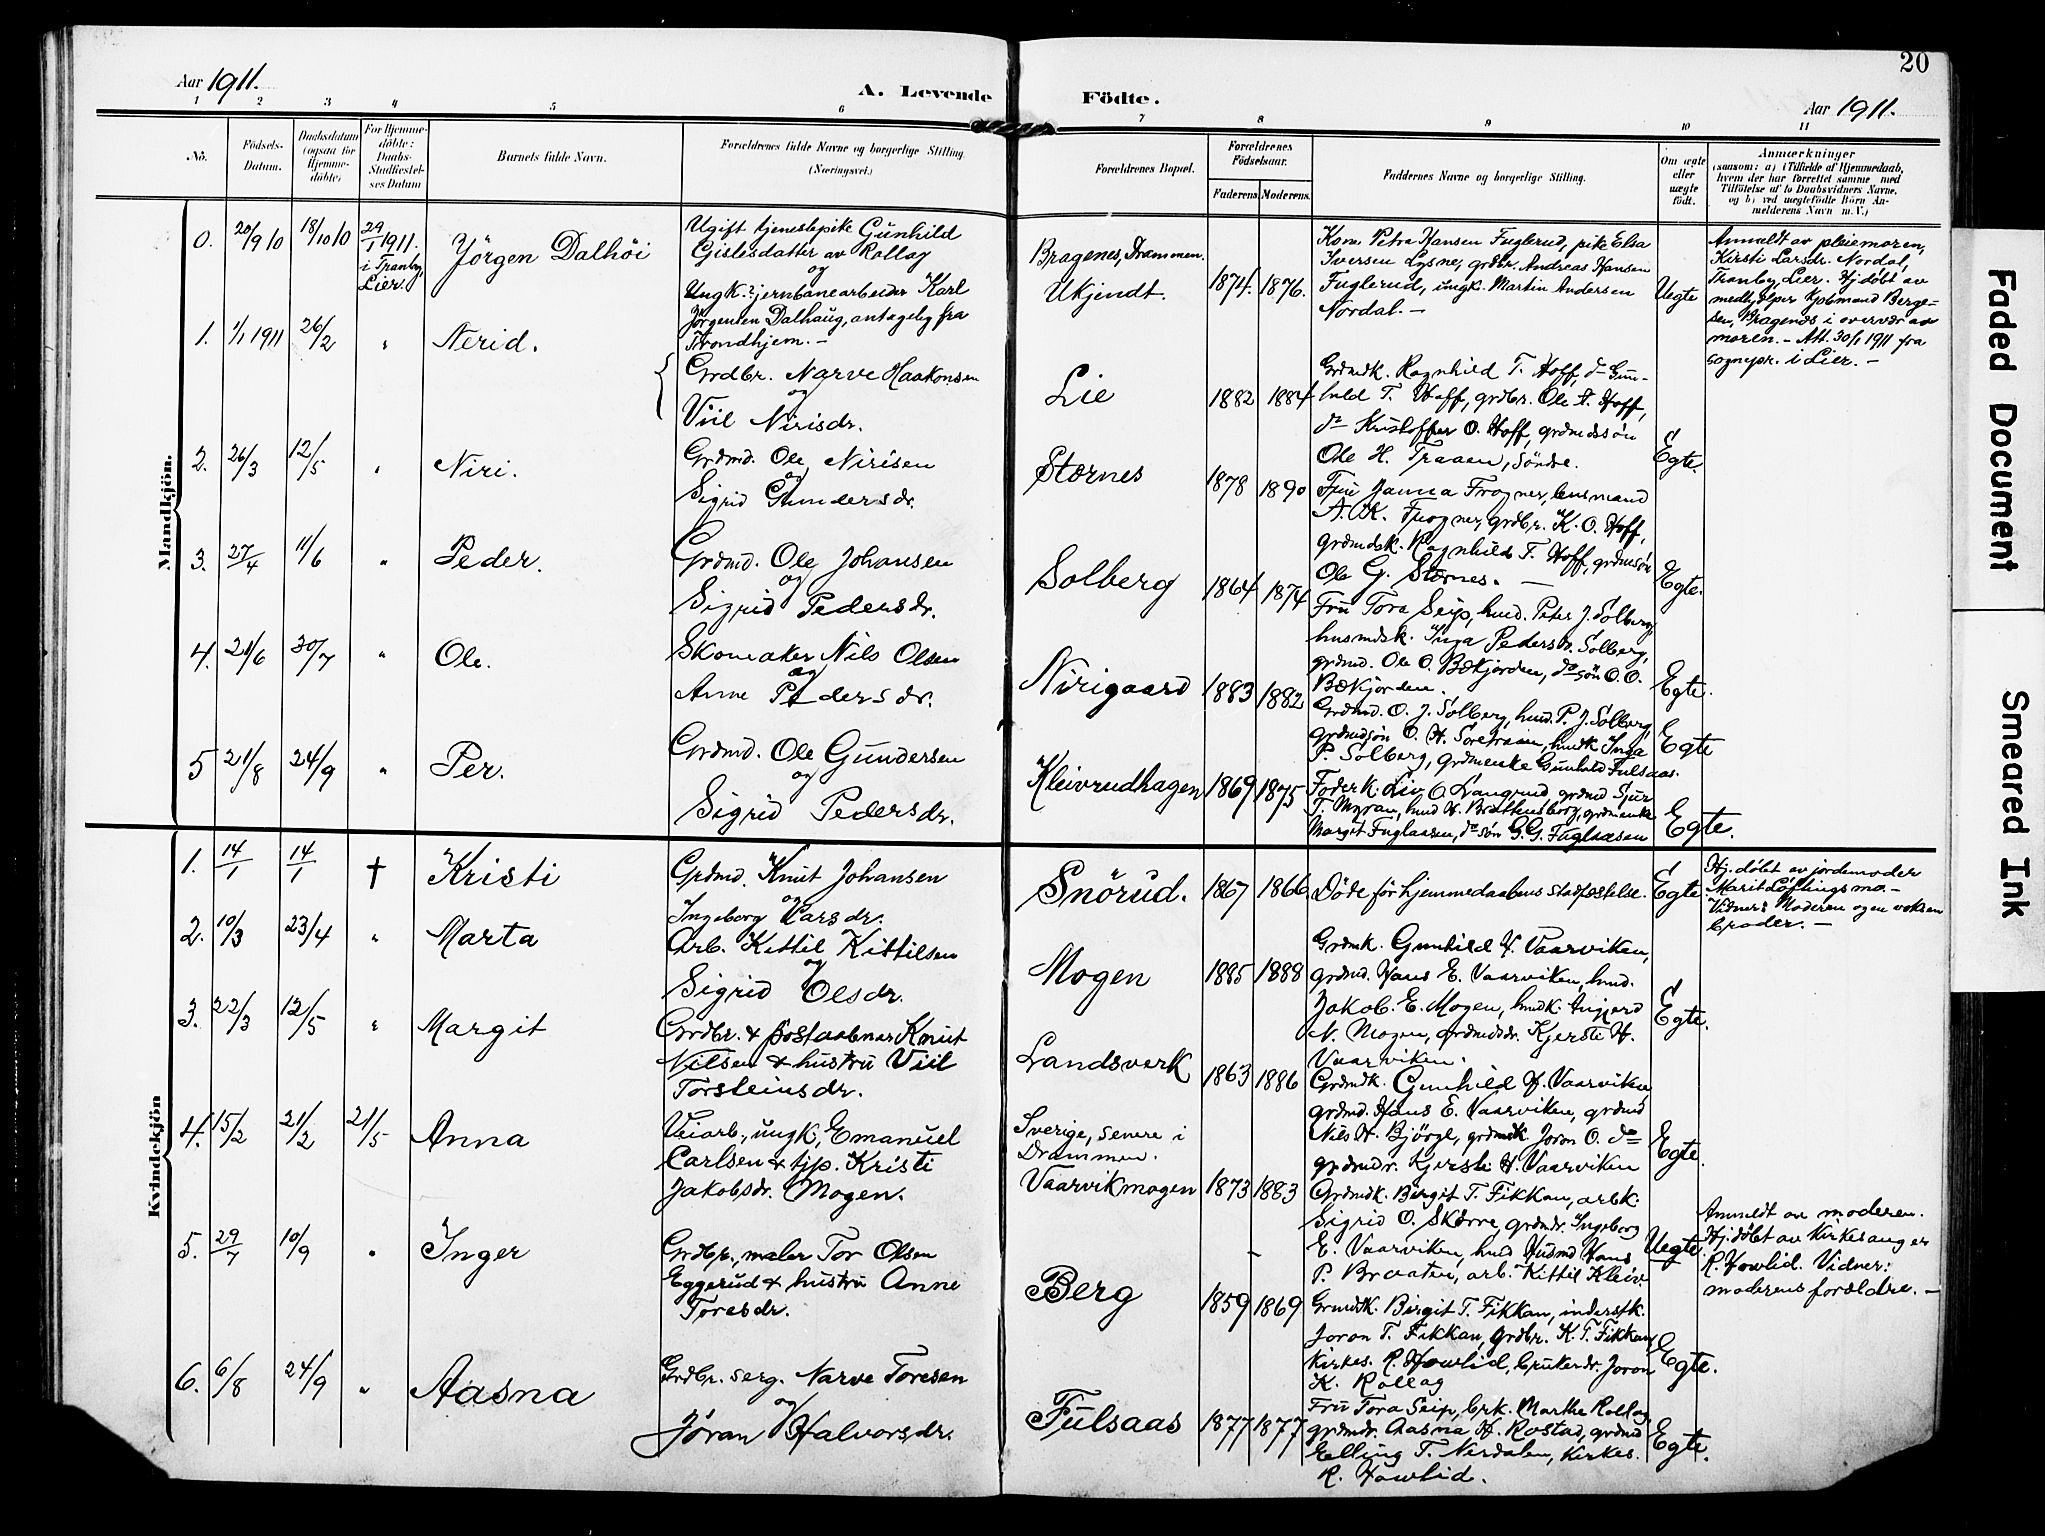 Aar 1911.
A. Levende Födte.
Aar 1911.
20
1 2 3 4 5 6 7 8 9 10 11
No.
Födsels-
Datum.
Daabsdatum
(ogsaa for
Hjemme-
döbte)
For Hjemme-
döbte:
Daabs-
Stadfæstel-
ses Datum
Barnets fulde Navn.
Forældrenes fulde Navne og borgerlige Stilling
(Næringsvei.)
Forældrenes Bopæl.
Forældrenes
Födselsaar.
Faderens. Moderens.
Faddernes Navne og borgerlige Stilling.
Om ægte
eller
uægte
födt.
Anmærkninger
(saasom: a) i Tilfælde af Hjemmedaab,
hvem der har forrettet samme med
Tilföielse af to Daabsvidners Navne,
og b) ved uægtefödte Börn An-
melderens Navn m. V.)
Mandkjön.
0. 20/9 10 18/10 10 29/1 1911.
i Tranby,
Lier.
Jörgen Dalhöi
Ugift tjenestepike Gunhild
Gislesdatter av Rollag
og
Ungk. jernbanearbeider Karl
Jörgensen Dalhaug, antagelig fra
Trondhjem. -
Bragenes, Drammen.
Ukjendt.
1874. 1876.
Kone Petra Hansen Fuglerud, pike Elsa
Iversen Lysne, grdbr. Andreas Hansen
Fuglerud, ungk. Martin Andersen
Nordal. -
Uegte
Anmeldt av pleiemoren,
Kirsti Larsdr. Nordal,
Tranby, Lier. Hj.döbt av
medhjelper Kjöbmand Berge-
sen, Bragenes i overvær av
moren. - Att. 30/1 1911 fra
sognepr. i Lier. -
1. 1/1 1911 26/2 " Nerid.
Grdbr. Narve Haakonsen
og
Viil Nirisdr.
Lie
1882 1884
Grdmdk. Ragnhild T. Hoff, do Gun-
hild T. Hoff, grdbr. Ole A. Hoff,
do Kristoffer O. Hoff, grdmdssön
Ole H. Traaen, söndre.
Egte.
2. 26/3 12/5 " Niri.
Grdmd. Ole Nirisen
og
Sigrid Gundersdr.
Stærnes
1878 1890
Fru Janna Frogner, lensmand
A. K. Frogner, grdbr. K. O. Hoff,
grdmdsk. Ragnhild T. Hoff, grdmsön
Ole G. Stærnes. -
Egte.
3. 27/4 11/6 " Peder.
Grdmd. Ole Johansen
og
Sigrid Pedersdr.
Solberg
1864 1874
Fru Tora Seip, husd. Peter J. Solberg,
husmdsk. Inga Pedersdr. Solberg,
grdmd. Ole O. Bækjorden, do sön O. O.
Bækjorden.
Egte.
4. 21/6 30/7 " Ole.
Skomaker Nils Olsen
og
Anne Pedersdr.
Nirigaard
1883 1882
Grdmd. O. J. Solberg, husd. P. J. Solberg,
grdmdsön O. H. Soretraaen, husdk Inga
P. Solberg, grdmenke Gunhild Fulsaas.
Egte
5 21/8 24/9 " Per.
Grdmd. Ole Gundersen
og
Sigrid Pedersdr.
Kleivrudhagen
1869 1875
Foderk. Liv O. Langrud grdmd Sjur
T. Myran, husd H. Brattensborg, grdmenke
Margit Fuglaasen, do sön G. G. Fuglaasen
Egte.
Kvindekjön
1. 14/1 14/1 † Kristi
Grdmd. Knut Johansen
og
Ingeborg Larsdr.
Snörud.
1867 1866.
Döde för hjemmedaabens stadfæstelse.
Egte.
Hj.döbt av jordemoder
Marit Löflingsmo. -
Vidner: Moderen og en voksen
broder. -
2. 10/3 23/4 " Marta
Arb. Kittil Kittilsen
og
Sigrid Olsdr.
Mogen
1885 1888
Grdmk. Gunhild H. Vaarviken,
grdmd. Hans E. Vaarviken, husd.
Jakob E. Mogen, husdk. Ingjerd
N. Mogen, grdmdsdr. Kjersti H.
Vaarviken.
Egte.
3. 22/3 12/5 " Margit
Grdbr. & postaabner Knut
Nilsen & hustru Viil
Torsteinsdr.
Landsverk
1863 1886
Grdmdk. Gunhild H. Vaarviken
grdmd. Hans E. Vaarviken, grdmd
Nils H. Björge, grdmdk Joron O. do
grdmdr. Kjersti H. Vaarviken
Egte.
4. 15/2 21/2 21/5 Anna
Veiarb., ungk, Emanuel
Carlsen & tjp. Kristi
Jakobsdr. Mogen.
Sverige, senere i
Drammen.
Vaarvikmogen
1873 1883
Grdmdk. Birgit T. Fikkan, arbk.
Sigrid O. Skærre, grdmdr. Ingeborg
E. Vaarviken, husd Hans
P. Braaten, arb. Kittil Kleiv.
Uegte.
Anmeldt av moderen.
Hj.döbt av Kirkesanger
R. Howlid. Vidner:
moderens forældre. -
5. 29/7 10/9 " Inger
Grdbr., maler Tor Olsen
Eggerud & hustru Anne
Toresdr.
Berg
1859 1869
Grmdk. Birgit T. Fikkan, inderstk.
Joron T. Fikkan, grdbr. K. T. Fikkan,
Kirkes. R. Howlid, brukerdr. Joron
K. Rollag
Egte.
6. 6/8 24/9 " Aasna
Grdbr. serg. Narve Toresen
og
Jöran Halvorsdr.
Fulsaas
1877 1877
Fru Tora Seip, brk. Marthe Rollag,
grdmdr. Aasna H. Rostad, grdmd
Elling T. Nerdalen, Kirkes.
R. Howlid.
Egte.
Faded Document
Smeared Ink